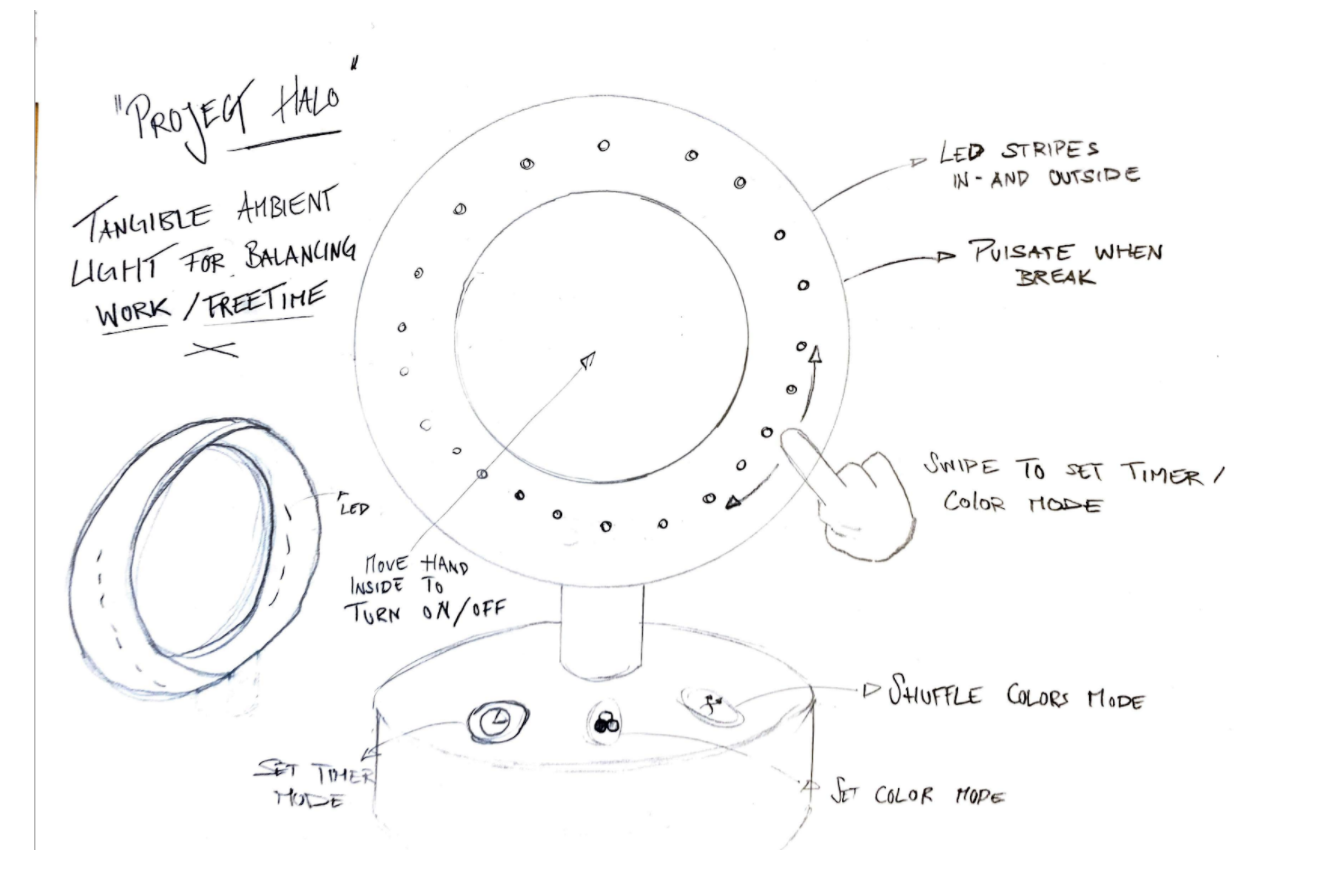 "PROJECT HALO"
TANGIBLE AMBIENT
LIGHT FOR BALANCING
WORK / FREETIME
LED STRIPES
IN- AND OUTSIDE
PULSATE WHEN
BREAK
SWIPE TO SET TIMER /
COLOR MODE
LED
MOVE HAND
INSIDE TO
TURN ON/OFF
SHUFFLE COLORS MODE
SET TIMER
MODE
SET COLOR MODE